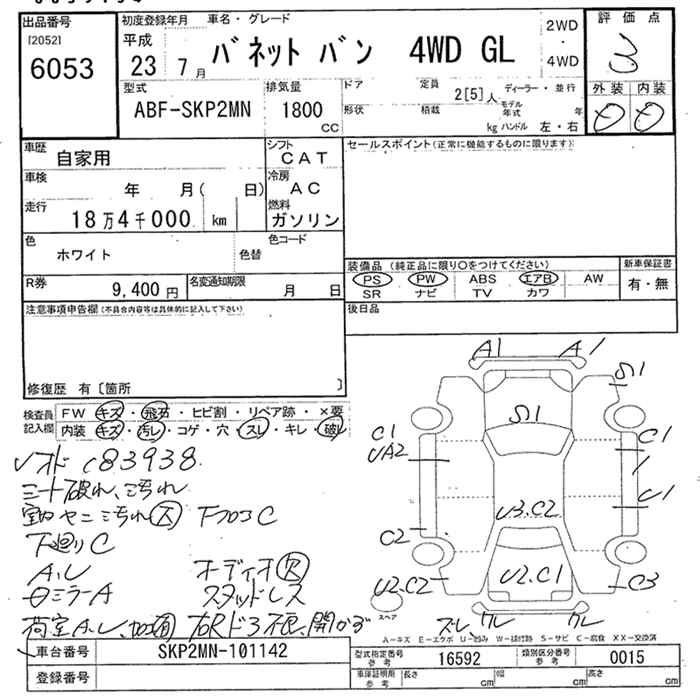 出品番号
[2052]
6053
初度登録年月 車名・グレード
平成
23年 7月
バネット バン 4WD GL
2WD
・
4WD
評価点
3
外装 内装
D D
型式
ABF-SKP2MN
排気量
1800
CC
ドア 定員 2[5]人
形状 積載 kg
ディーラー・並行
モデル年式 年
ハンドル 左・右
車歴
自家用
シフト
CAT
車検
年 月( 日)
冷房
AC
走行
18万4千000 km
燃料
ガソリン
色
ホワイト
色替
色コード
R券
9,400円
名変通知期限
月 日
セールスポイント(正常に機能するものに限ります)
装備品(純正品に限り〇をつけてください)
PS PW ABS エアB AW
SR ナビ TV カワ
新車保証書
有・無
後日品
注意事項申告欄(不具合内容等は具体的に記入して下さい)
修復歴 有〔箇所 〕
検査員記入欄
FW キズ・飛石・ヒビ割・リペア跡・×要
内装 キズ・汚レ・コゲ・穴・スレ・キレ・破レ
C83938
シート破れ、汚れ
室内ヤニ汚れ大 FフロアC
下廻りC
A、U オーディオ欠
ミラーA スタッドレス
荷室A、U、加工有
A1 A1
S1
S1
C1
UA2
C1
U1
U3、C2
C2
U2、C2
U2、C1
C3
スペア
ズレ クレ クレ
A－キズ E－エクボ U－凹み W－補修跡 S－サビ C－腐食 XX－交換済
車台番号
SKP2MN-101142
登録番号
型式指定番号
参考
16592
類別区分番号
参考
0015
車庫証明用
参考
長さ cm
幅 cm
高さ cm